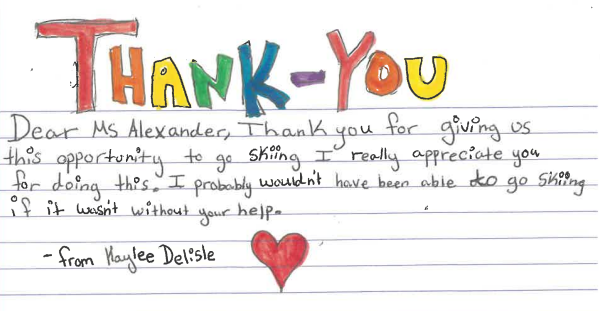 THANK-YOU
Dear Ms Alexander, Thank you for giving us
this opportunity to go skiing I really appreciate you
for doing this. I probably wouldn't have been able to go skiing
if it wasn't without your help.
- from Kaylee Delisle